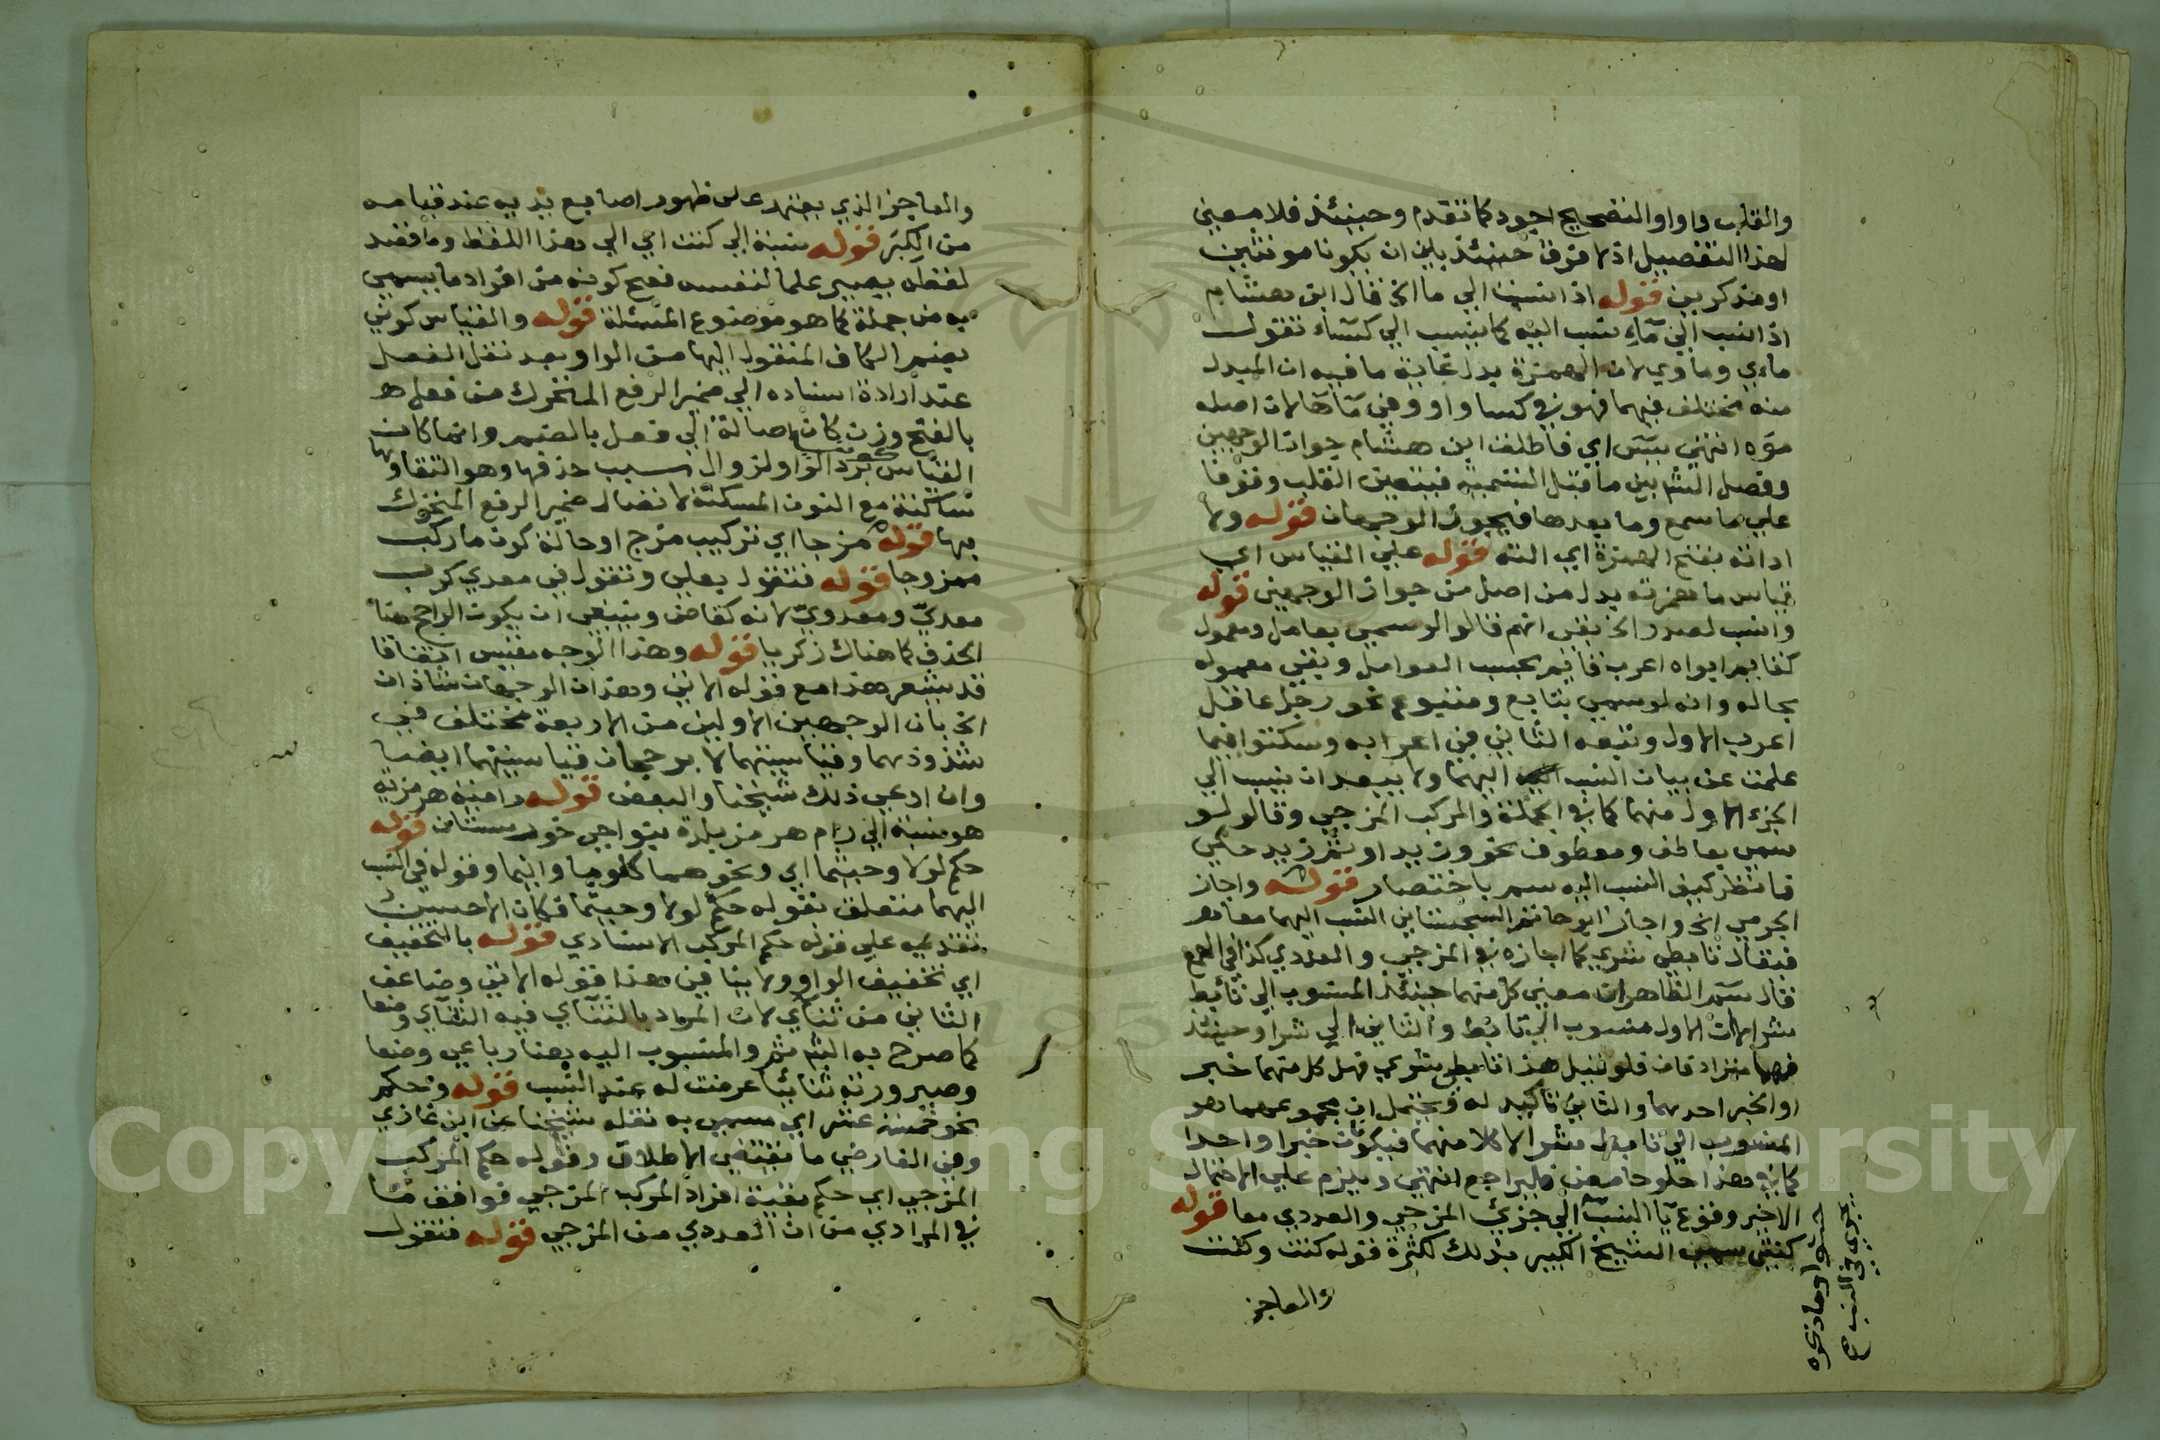 والقلب واوا والتصحيح اجود كما تقدم وحينئذ فلا معنى
لهذا التفصيل اذ لا فرق حينئذ بين ان يكونا مونثين
او مذكرين قوله اذا نسب الي ما الخ قال ابن هشام
اذا نسب الي ماء نسب اليه كما ينسب الي كساء تقول
مائي وماوي لان الهمزة بدل غاية ما فيه ان المبدل
منه مختلف فيهما فهو في كسا واو وفي ما ها لان اصله
موه انتهى يس اي فاطلق ابن هشام جواز الوجهين
وفصل الش بين ما قبل التسمية فيتعين القلب وقوفا
علي ما سمع وما بعدها فيجوز الوجهان قوله ولا
اداته بفتح الهمزة اي الته قوله علي القياس اي
قياس ما همزته بدل من اصل من جواز الوجهين قوله
وانسب لصدر الخ بقي انهم قالوا لو سمي بعامل ومعمول
كقايم ابواه اعرب قايم بحسب العوامل وبقي معموله
بحاله وانه لو سمي بتابع ومتبوع نحو رجل عاقل
اعرب الاول وتبعه الثاني في اعرابه وسكتوا فيما
علمت عن بيان النسب اليهما ولا يبعد ان ينسب الي
الجزء الاول منهما كما في الجملة والمركب المزجي وقالو لو
سمي بعاطف ومعطوف نحو وزيد او ثم زيد حكي
فانظر كيف النسب اليه سم باختصار قوله واجاز
الجرمي الخ واجاز ابو حاتم السجستاني النسب اليهما معا نحو
فيقال تابطي شري كما اجازه في المزجي والعددي كذا في الهمع
قال سم الظاهر ان معني كل منهما حينئذ المنسوب الي تأبط
شرا لان الاول منسوب الي تأبط والثاني الي شرا وحينئذ
فهما مترادفان فلو قيل هذا تابطي شري فهل كل منهما خبر
او الخبر احدهما والثاني تاكيد له ويحتمل ان مجموعهما هو
المنسوب الي تابط شرا لا كلا منهما فيكون خبرا واحدا
كما في هذا حلو حامض فليراجع انتهى ويلزم علي الاحتمال
الاخير وقوع يا النسب الي جزئي المزجي والعددي معا قوله
كنتي سمي الشيخ الكبير بذلك لكثرة قوله كنت وكنت
والعاجز
والعاجز الذي يعتمد على ظهور اصابع يديه عند قيامه
من الكبر قوله نسبة الي كنت اي الي هذا اللفظ وما قصد
لفظه يصير علما لنفسه فصح كونه من افراد ما يسمى
به من جملة كما هو موضوع المسئلة قوله والقياس كوني
بضم الكاف المنقول اليها من الواو بعد نقل الفعل
عند ارادة اسناده الي ضمير الرفع المتحرك من فعل هـ
بالفتح وزن كان اصالة الي فعل بالضم وانما كان
القياس كوني برد الواو لزوال سبب حذفها وهو التقاوها
ساكنة مع النون المسكنة لاتصال ضمير الرفع المتحرك
بها قوله مزجا اي تركيب مزج او حالة كون ما ركب
ممزوجا قوله فتقول بعلي وتقول في معدي كرب
معدي ومعدوي لانه كقاض وينبغي ان يكون الراجح هنا
الحذف كما هناك زكريا قوله وهذا الوجه مقيس اتفاقا
قد يشعر هذا مع قوله الاتي وهذان الوجهان شاذان
الخ بان الوجهين الاولين من الاربعة مختلف في
شذوذهما وقياسيتهما لا يرجحان قياسيتهما ايضا
وان ادعي ذلك شيخنا والبعض قوله رامية هرمزية
هو نسبة الي رام هرمز بلدة بنواحي خورستان قوله
حكم لولا وحيثما اي ونحوهما كلوما واينما وقوله في النسب
اليهما متعلق بقوله حكم لولا وحيثما فكان الاحسن
تقديمه علي قوله حكم المركب الاسنادي قوله بالتخفيف
اي تخفيف الواو ولا ينافي هذا قوله الاتي وضاعف
الثاني من ثنائي لان المراد بالثنائي فيه الثنائي وضعا
كما صرح به الش ثم والمنسوب اليه هنا رباعي وضعا
وصيرورته ثنائيا عرضت له عند النسب قوله وحكم
نحو خمسة عشر اي مسمى به نقله شيخنا عن ابن غازي
وفي الفارضي ما يقتضي الاطلاق وقوله حكم المركب
المزجي اي حكم بقية افراد المركب المزجي فوافق هنا
في المرادي من ان العددي من المزجي قوله فتقول
Copyright © King Saud University